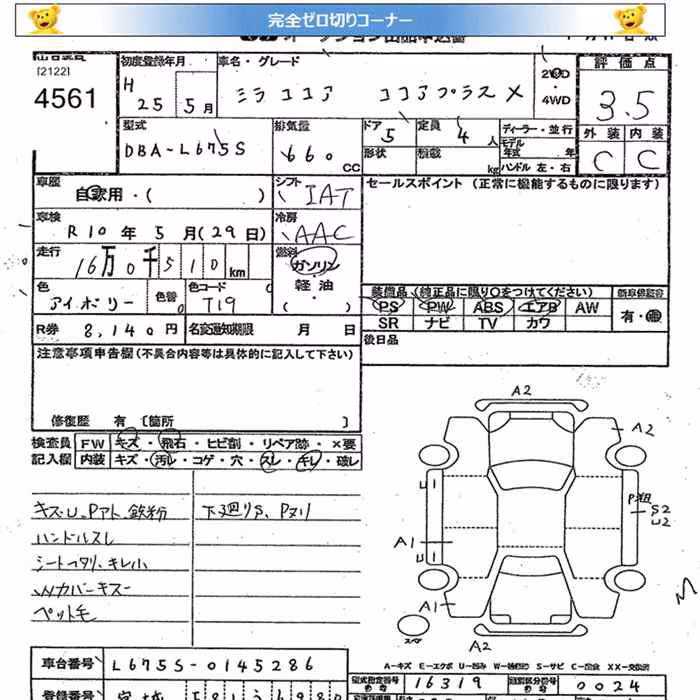 完全ゼロ切りコーナー
[2122]
4561
初度登録年月
H 25 5月
車名・グレード
ミラ ココア ココアプラス X
2WD・4WD
評価点
3.5
外装 内装
C C
型式
DBA-L675S
排気量
660 CC
ドア 5
形状
定員 4 人
積載 kg
ディーラー・並行
モデル年式 年
ハンドル 左・右
車歴
自家用・( )
シフト
IAT
セールスポイント (正常に機能するものに限ります)
車検
R10年 5月(29日)
冷房
AAC
走行
16万0千510km
燃料
ガソリン
軽油
( )
色
アイボリー
色替 0
色コード
T19
装備品(純正品に限り○をつけてください)
PS PW ABS エアB AW
SR ナビ TV カワ
新車保証書
有・無
R券 8,140円
名変通知期限 月 日
後日品
注意事項申告欄(不具合内容等は具体的に記入して下さい)
修復歴 有 〔箇所 〕
検査員記入欄
FW キズ・飛石・ヒビ割・リペア跡・×要
内装 キズ・汚レ・コゲ・穴・スレ・キレ・破レ
キズ.U.Pアト.鉄粉
下廻りS、Pヌリ
ハンドルスレ
シートヘタリ、キレ小
Wカバーキズ
ペット毛
A2
A2
U1
P粗
S2
U2
A1
A1
スペア
A2
M
A-キズ E-エクボ U-凹み W-補修跡 S-サビ C-腐食 XX-交換済
車台番号
L675S-0145286
型式指定番号 16319
類別区分番号 0024
登録番号
宮城